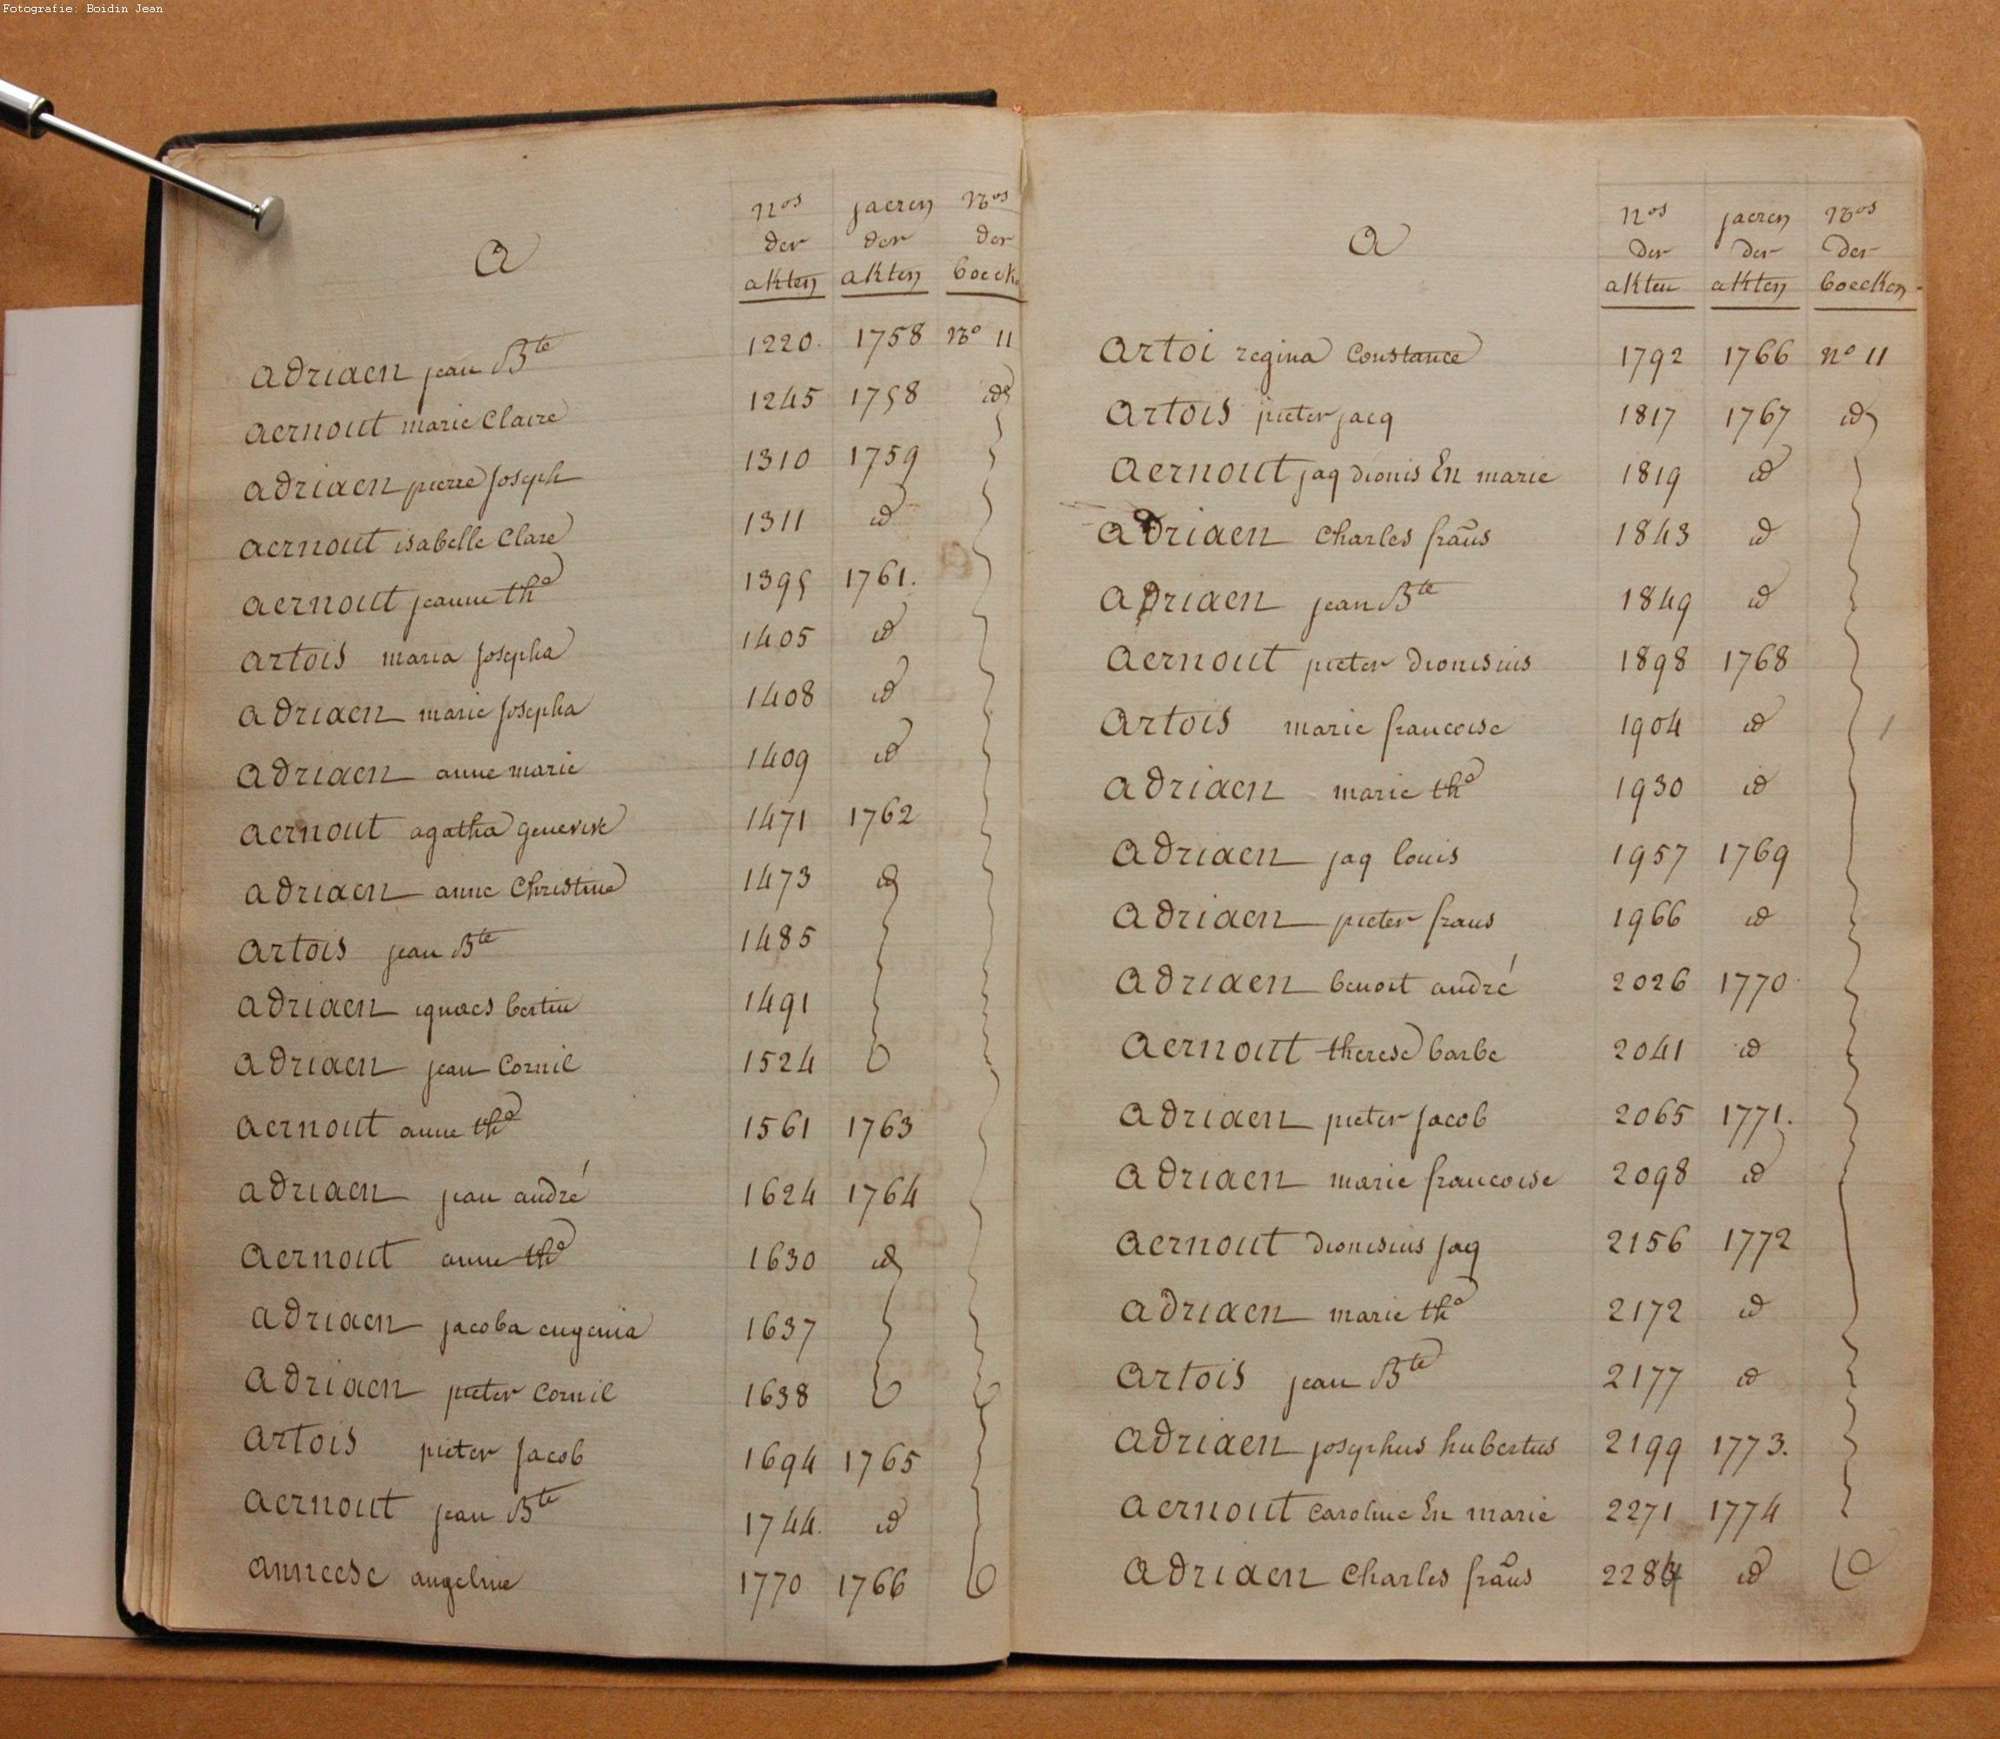 Fotografie: Boidin Jean
a
nos jaeren nos
der der der
akten akten boeck.
adriaen jean Bte 1220. 1758 no 11
aernout marie Claire 1245 1758 id
adriaen pierre joseph 1310 1759
aernout isabelle Clare 1311 id
aernout jeanne tha 1395 1761.
artois maria josepha 1405 id
adriaen marie josepha 1408 id
adriaen anne marie 1409 id
aernout agatha genevive 1471 1762
adriaen anne Christine 1473 id
artois jean Bte 1485
adriaen ignaes bertin 1491
adriaen jean Cornil 1524
aernout anne tha 1561 1763
adriaen jean andré 1624 1764
aernout anne tha 1630 id
adriaen jacoba eugenia 1637
adriaen pieter Cornil 1638
artois pieter jacob 1694 1765
aernout jean Bte 1744. id
anneese angeline 1770 1766
a
nos jaeren nos
der der der
akten akten boecken
artoi regina Constance 1792 1766 no 11
artois pieter jacq 1817 1767 id
aernout jaq dionis En marie 1819 id
adriaen Charles frans 1843 id
adriaen jean Bte 1849 id
aernout pieter dionisius 1898 1768
artois marie francoise 1904 id
adriaen marie tha 1930 id
adriaen jaq louis 1957 1769
adriaen pieter frans 1966 id
adriaen benoit andré 2026 1770
aernout therese barbe 2041 id
adriaen pieter jacob 2065 1771.
adriaen marie francoise 2098 id
aernout dionisius jaq 2156 1772
adriaen marie tha 2172 id
artois jean Bte 2177 id
adriaen josephus hubertus 2199 1773.
aernout caroline En marie 2271 1774
adriaen Charles frans 2284 id